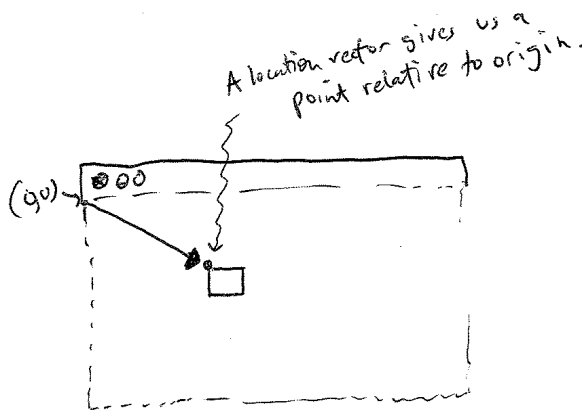 A location vector gives us a
point relative to origin.
(0,0)